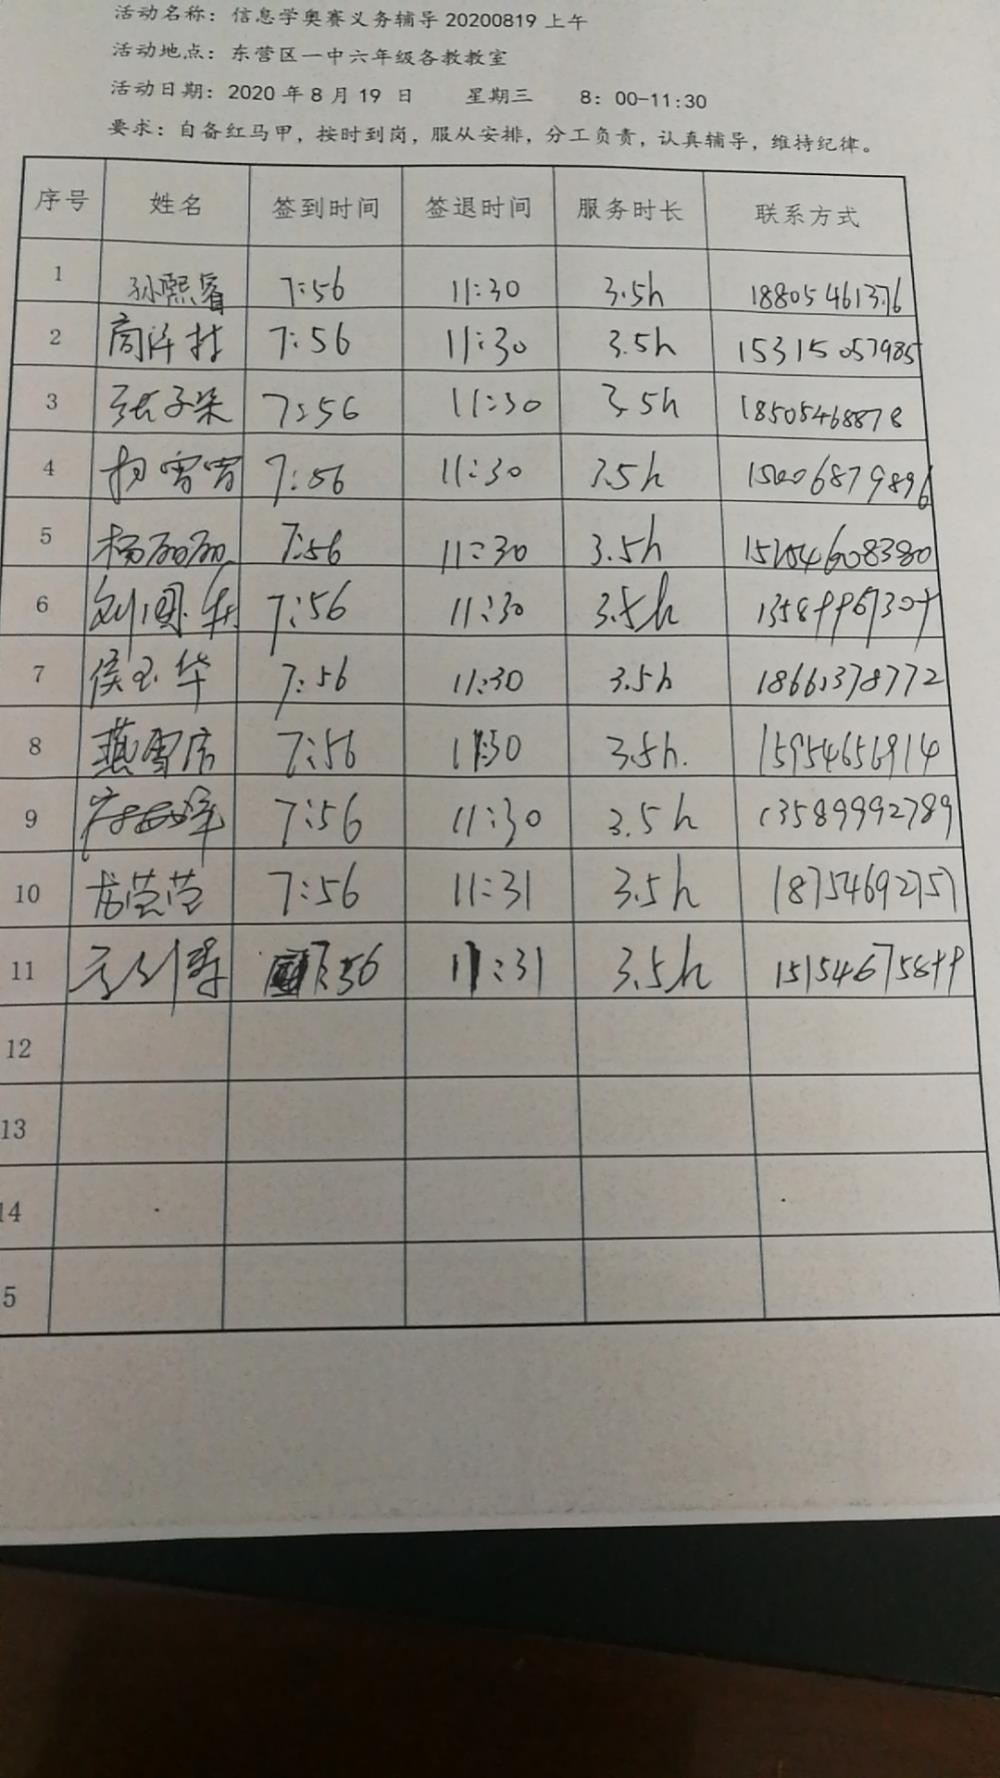 活动名称：信息学奥赛义务辅导 20200819 上午
活动地点：东营区一中六年级各教教室
活动日期：2020 年 8 月 19 日 星期三 8：00-11:30
要求：自备红马甲，按时到岗，服从安排，分工负责，认真辅导，维持纪律。
序号 姓名 签到时间 签退时间 服务时长 联系方式
1 孙熙睿 7:56 11:30 3.5h 18805461376
2 7:56 11:30 3.5h 15315057985
3 张子朵 7:56 11:30 3.5h 18505468878
4 杨雪雪 7:56 11:30 3.5h
5 杨丽丽 7:56 11:30 3.5h
6 7:56 11:30 3.5h
7 侯玉华 7:56 11:30 3.5h 18661378772
8 7:56 11:30 3.5h. 15954656914
9 7:56 11:30 3.5h 13589992789
10 7:56 11:31 3.5h 18754692757
11 7:56 11:31 3.5h
12
13
14
5